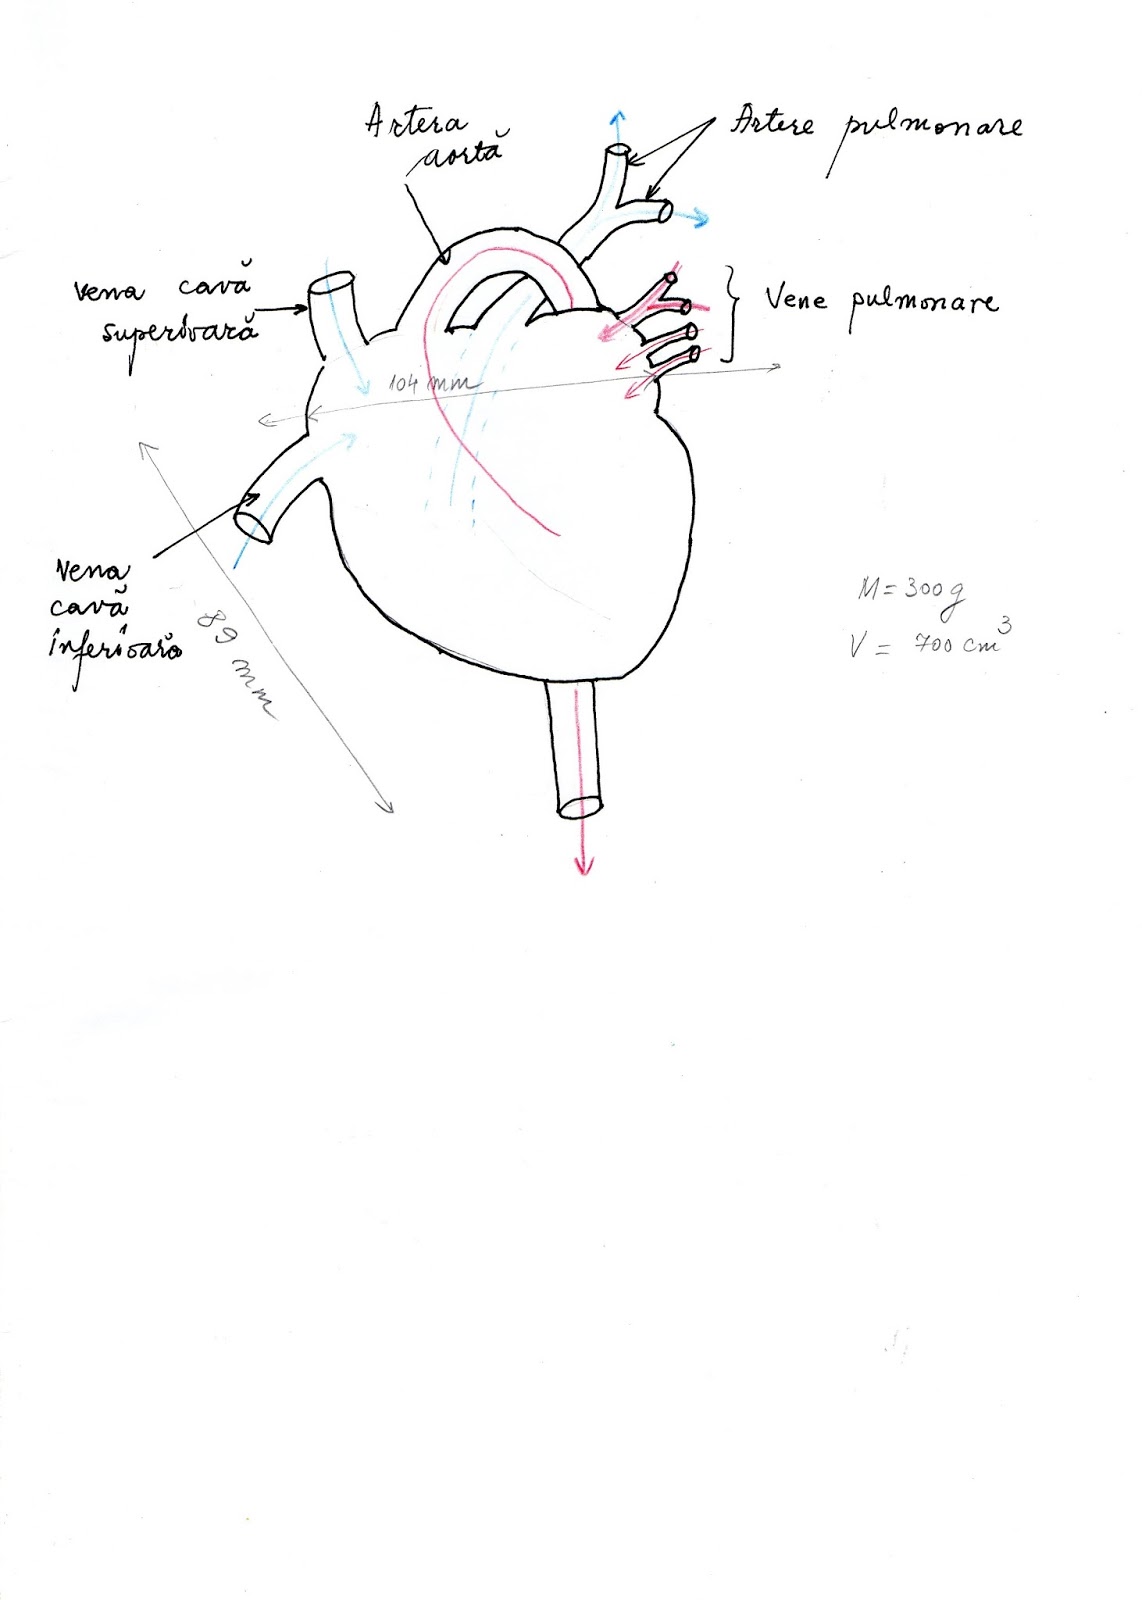 Artera
aortă
Artere pulmonare
vena cavă
superioară
Vene pulmonare
104 mm
Vena
cavă
inferioară
89 mm
M = 300g
V = 700 cm³